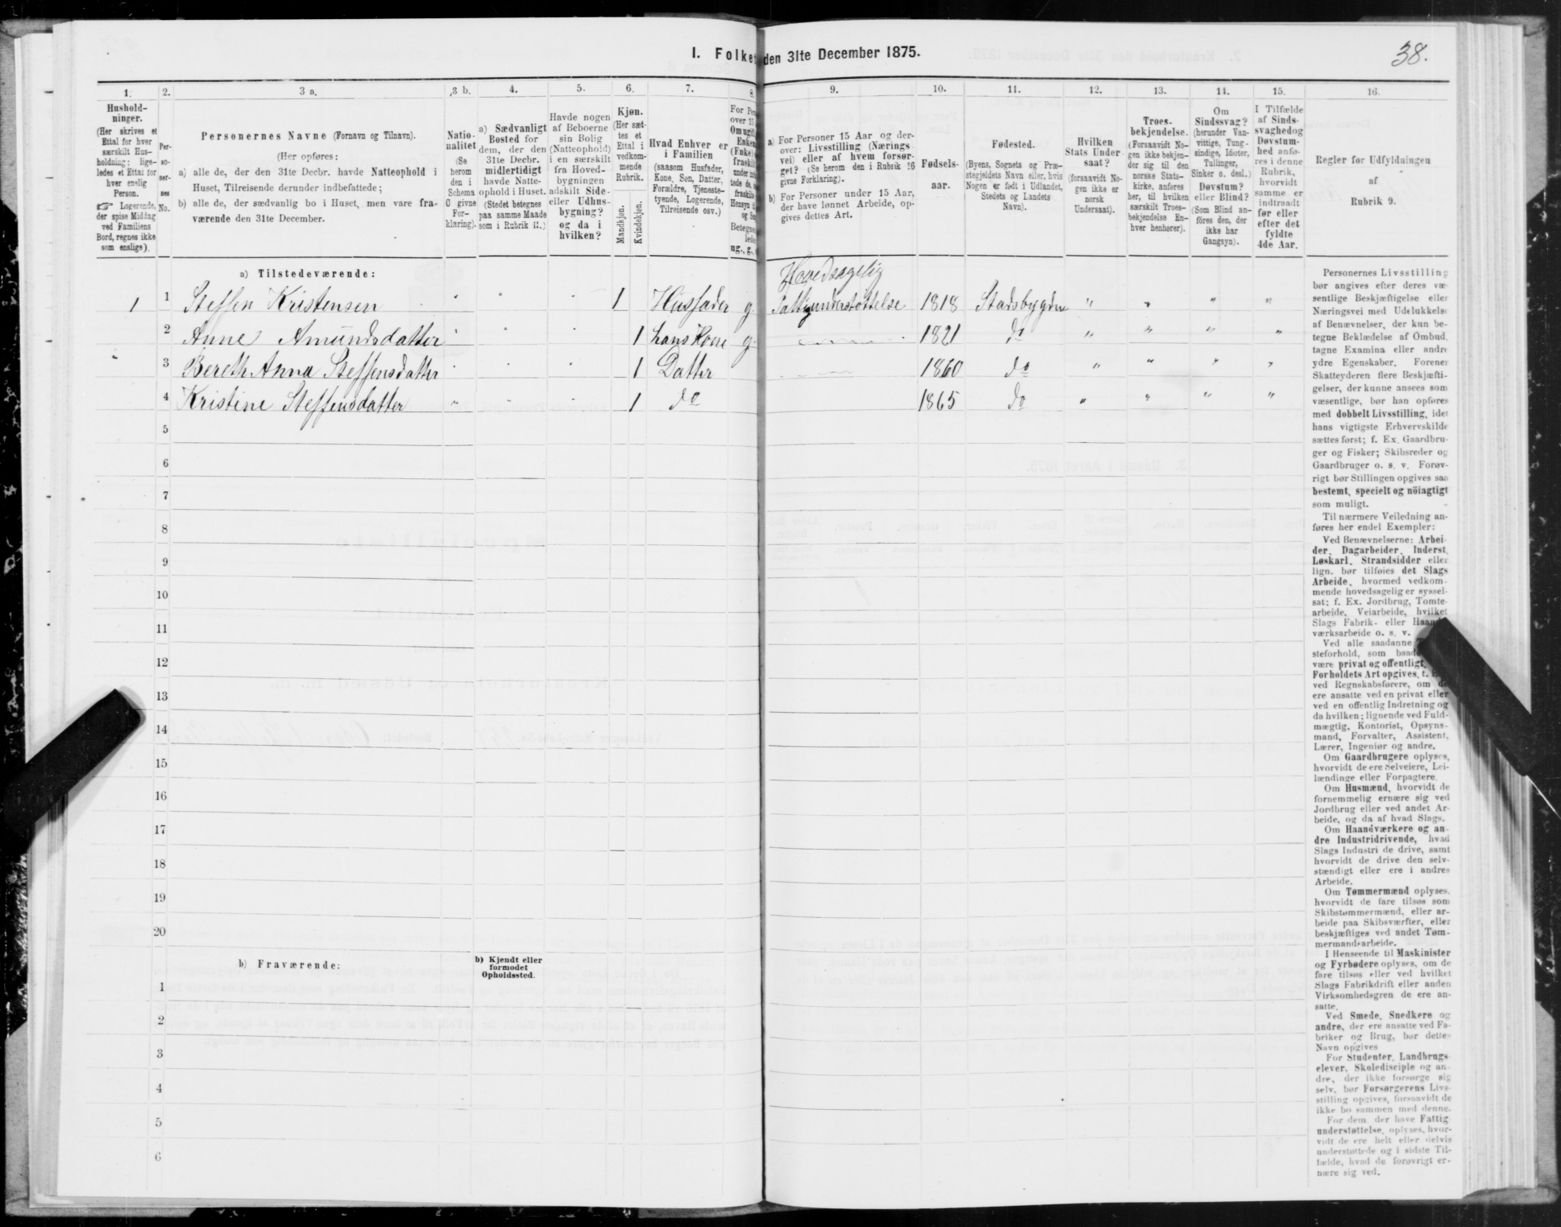 I. Folke den 31te December 1875.
38.
1.
2.
3 a.
3 b.
4.
5.
6.
7.
8.
9.
10.
11.
12.
13.
14.
15.
16.
Hushold-
ninger.
(Her skrives et
Ettal for hver
særskilt Hus-
holdning; lige-
ledes et Ettal for
hver enslig
Person.
☞ Logerende,
der spise Middag
ved Familiens
Bord, regnes ikke
som enslige).
Per-
so-
ner-
nes
No.
Personernes Navne (Fornavn og Tilnavn).
(Her opføres:
a) alle de, der den 31te Decbr. havde Natteophold i
Huset, Tilreisende derunder indbefattede;
b) alle de, der sædvanlig bo i Huset, men vare fra-
værende den 31te December.
Natio-
nalitet
(Se
herom
den i
Schema
C givne
For-
klaring).
a) Sædvanligt
Bosted for
dem, der den
31te Decbr.
midlertidigt
havde Natte-
ophold i Huset.
(Stedet betegnes
paa samme Maade
som i Rubrik 11.)
Havde nogen
af Beboerne
sin Bolig
(Natteophold)
i en særskilt
fra Hoved-
bygningen
adskilt Side-
eller Udhus-
bygning?
og da i
hvilken?
Kjøn.
(Her sæt-
tes et
Ettal i
vedkom-
mende
Rubrik.
Mandkjøn.
Kvindekjøn.
Hvad Enhver er
i Familien
(saasom Husfader,
Kone, Søn, Datter,
Forældre, Tjeneste-
tyende, Logerende,
Tilreisende osv.)
For Per
over 15
Om ugift
Enkem
(Enke)
fraskilt
ug., g., e
a) For Personer 15 Aar og der-
over: Livsstilling (Nærings
vei) eller af hvem forsør-
get? (Se herom den i Rubrik 16
givne Forklaring).
b) For Personer under 15 Aar,
der have lønnet Arbeide, op-
gives dettes Art.
Fødsels-
aar.
Fødested.
(Byens, Sognets og Præ-
stegjeldets Navn eller, hvis
Nogen er født i Udlandet,
Stedets og Landets
Navn).
Hvilken
Stats Under-
saat?
(forsaavidt No-
gen ikke er
norsk
Undersaat).
Troes-
bekjendelse.
(Forsaavidt No-
gen ikke bekjen-
der sig til den
norske Stats-
kirke, anføres
her, til hvilken
særskilt Troes-
bekjendelse En-
hver henhører).
Om
Sindssvag?
(herunder Van-
vittige, Tung-
sindige, Idioter,
Tullinger,
Sinker o. desl.)
Døvstum?
eller Blind?
(Som Blind an-
føres den, der
ikke har
Gangsyn).
I Tilfælde
af Sinds-
svaghed og
Døvstum-
hed anfø-
res i denne
Rubrik,
hvorvidt
samme er
indtraadt
før eller
efter det
fyldte
4de Aar.
Regler for Udfyldningen
af
Rubrik 9.
a) Tilstedeværende:
Hovedsagelig
1 1 Steffen Kristensen " " " 1 Husfader g. Fattigunderstøttelse 1818 Stadsbygden " " " "
2 Anne Amundsdatter " " " 1 hans Kone g. 1821 do " " " "
3 Bereth Anna Steffensdatter " " " 1 Datter 1860 do " " " "
4 Kristine Steffensdatter " " " 1 do 1865 do " " " "
5
6
7
8
9
10
11
12
13
14
15
16
17
18
19
20
b) Fraværende:
b) Kjendt eller
formodet
Opholdssted.
1
2
3
4
5
6
Personernes Livsstilling
bør angives efter deres væ-
sentlige Beskjæftigelse eller
Næringsvei med Udelukkelse
af Benævnelser, der kun be-
tegne Beklædelse af Ombud,
tagne Examina eller andre
ydre Egenskaber. Forener
Skatteyderen flere Beskjæfti-
gelser, der kunne ansees som
væsentlige, bør han opføres
med dobbelt Livsstilling, idet
hans vigtigste Erhvervskilde
sættes først; f. Ex. Gaardbru-
ger og Fisker; Skibsreder og
Gaardbruger o. s. v. Forøv-
rigt bør Stillingen opgives saa
bestemt, specielt og nöiagtigt
som muligt.
Til nærmere Veiledning an-
føres her endel Exempler:
Ved Benævnelserne: Arbei-
der, Dagarbeider, Inderst,
Løskarl, Strandsidder eller
lign. bør tilføies det Slags
Arbeide, hvormed vedkom-
mende hovedsagelig er syssel-
sat; f. Ex. Jordbrug, Tomte-
arbeide, Veiarbeide, hvilket
Slags Fabrik- eller Haand-
værksarbeide o. s. v.
Ved alle saadanne
steforhold, som baade
være privat og offentligt,
Forholdets Art opgives, t.
ved Regnskabsførere, om de
ere ansatte ved en privat eller
ved en offentlig Indretning og
da hvilken; lignende ved Fuld-
mægtig, Kontorist, Opsyns-
mand, Forvalter, Assistent,
Lærer, Ingeniør og andre.
Om Gaardbrugere oplyses,
hvorvidt de ere Selveiere, Lei-
lændinge eller Forpagtere.
Om Husmænd, hvorvidt de
fornemmelig ernære sig ved
Jordbrug eller ved andet Ar-
beide, og da af hvad Slags.
Om Haandværkere og an-
dre Industridrivende, hvad
Slags Industri de drive, samt
hvorvidt de drive den selv-
stændigt eller ere i andres
Arbeide.
Om Tømmermænd oplyses,
hvorvidt de fare tilsøs som
Skibstømmermænd, eller ar-
beide paa Skibsværfter, eller
beskjæftiges ved andet Tøm-
mermandsarbeide.
I Henseende til Maskinister
og Fyrbødere oplyses, om de
fare tilsøs eller ved hvilket
Slags Fabrikdrift eller anden
Virksomhedsgren de ere an-
satte.
Ved Smede, Snedkere og
andre, der ere ansatte ved Fa-
briker og Brug, bør dette-
Navn opgives
For Studenter, Landbrugs
elever, Skoledisciple og an-
dre, der ikke forsørge sig
selv, bør Forsørgerens Livs-
stilling opgives, forsaavidt de
ikke bo sammen med denne.
For dem, der have Fattig
understøttelse, oplyses, hvor-
vidt de ere helt eller delvis
understøttede og i sidste Til-
fælde, hvad de forøvrigt er-
nære sig ved.